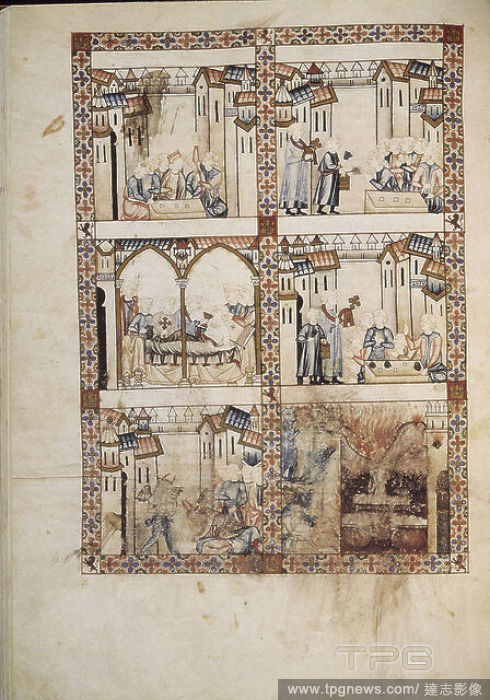 TPG
www.tpgnews.com/達志影像